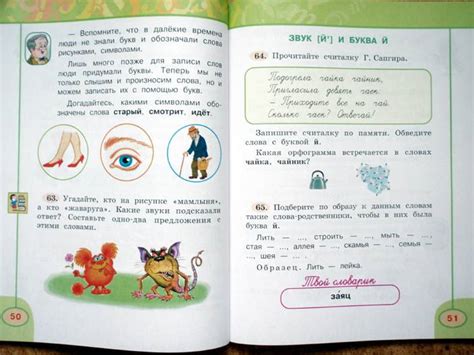 — Вспомните, что в далёкие времена
люди не знали букв и обозначали слова
рисунками, символами.
Лишь много позже для записи слов
люди придумали буквы. Теперь мы не
только слышим и произносим слова, но и
можем записать их с помощью букв.
Догадайтесь, какими символами обо-
значены слова старый, смотрит, идёт.
63. Угадайте, кто на рисунке «мамлыня»,
а кто «жаваруга». Какие звуки подсказали
ответ? Составьте одно-два предложения с
этими словами.
50
ЗВУК [Й'] И БУКВА Й
64. Прочитайте считалку Г. Сапгира.
Подогрела чайка чайник,
Пригласила девять чаек.
— Приходите все на чай.
Сколько чаек? Отвечай!
Запишите считалку по памяти. Обведите
слова с буквой й.
Какая орфограмма встречается в словах
чайка, чайник?
65. Подберите по образцу к данным словам
такие слова-родственники, чтобы в них была
буква й.
Лить — ..., строить — ..., мыть — ...,
стая — ..., аллея — ..., скамья — ..., семья — ...,
шея — ... .
Образец. Лить — лейка.
Твой словарик
заяц
51